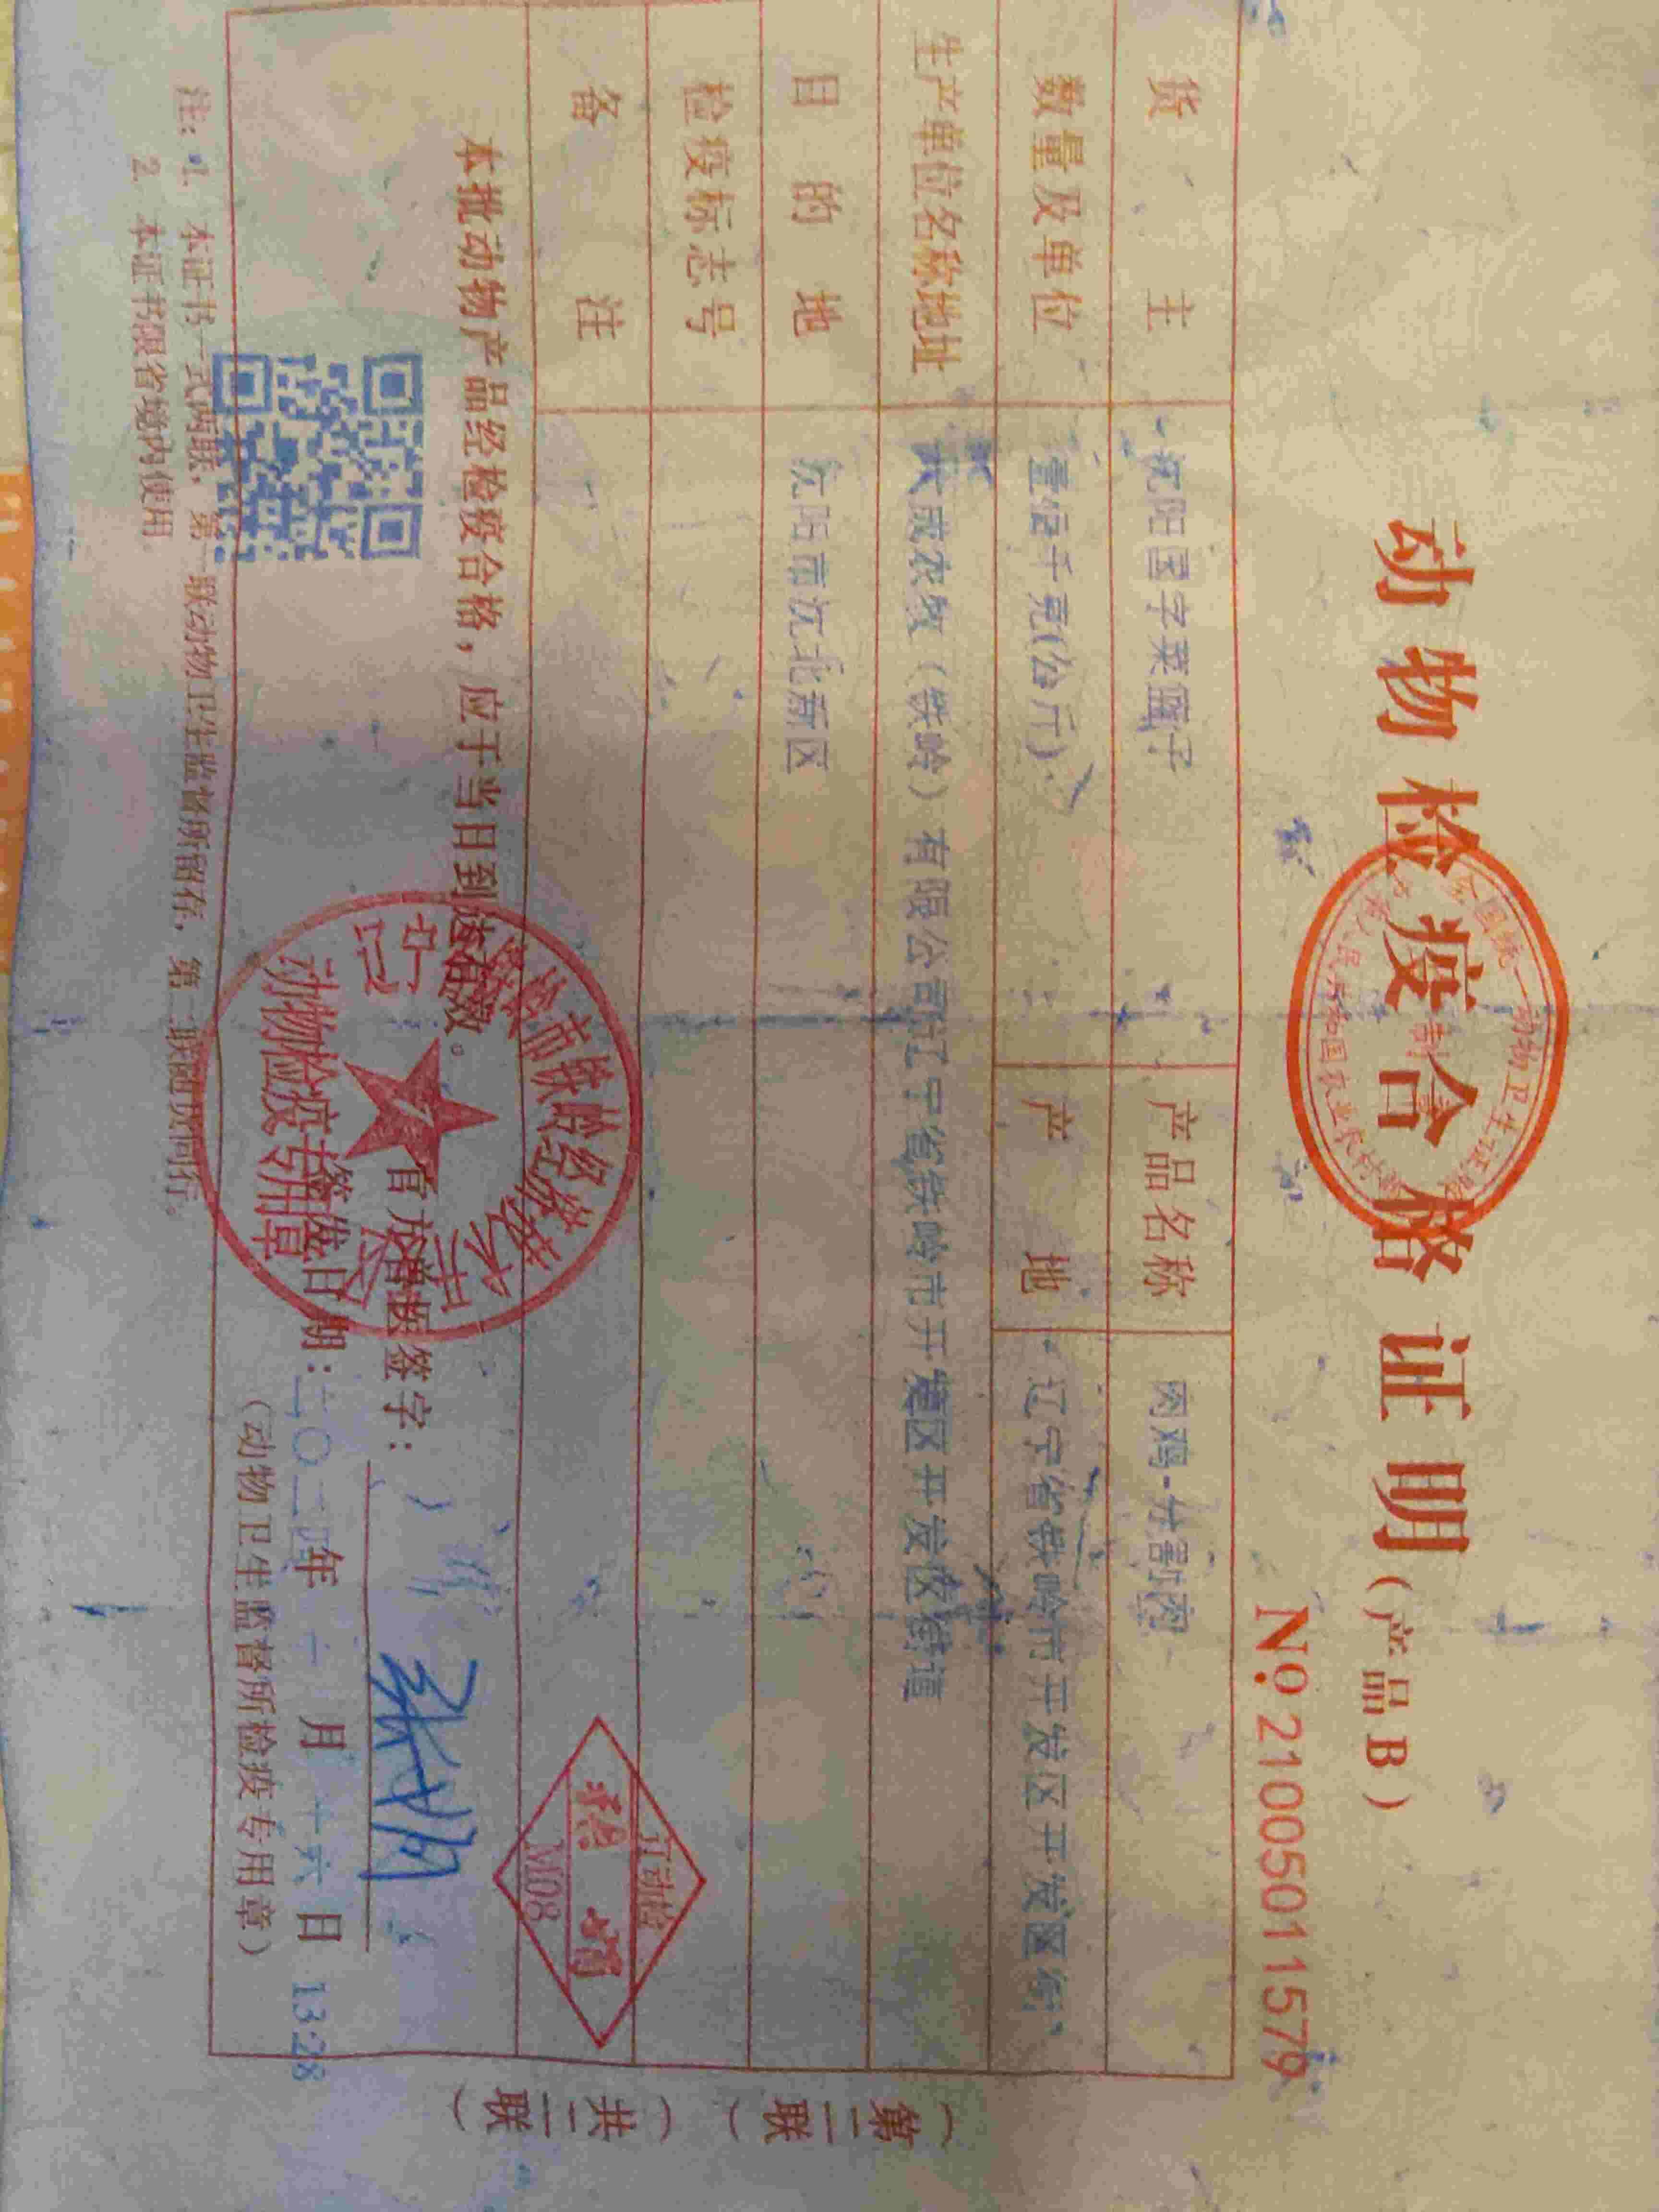 动物检疫合格证明（产品B）
№ 2100501 1579
货主 沈阳国字菜篮子
产品名称 肉鸡-分割肉
数量及单位 壹佰千克(公斤)
产地 辽宁省铁岭市开发区开发区街
生产单位名称地址 大成农牧（铁岭）有限公司辽宁省铁岭市开发区开发区街道
目的地 沈阳市沈北新区
检疫标志号
备注
本批动物产品经检疫合格，应于当日到达有效。
官方兽医签字：
签发日期：二〇二 年 二 月 十六 日 13:28
（动物卫生监督所检疫专用章）
注：1. 本证书一式两联，第一联动物卫生监督所留存，第二联随货同行。
2. 本证书限省境内使用。
（第二联）（共二联）
动物检疫专用章
辽动检
M08